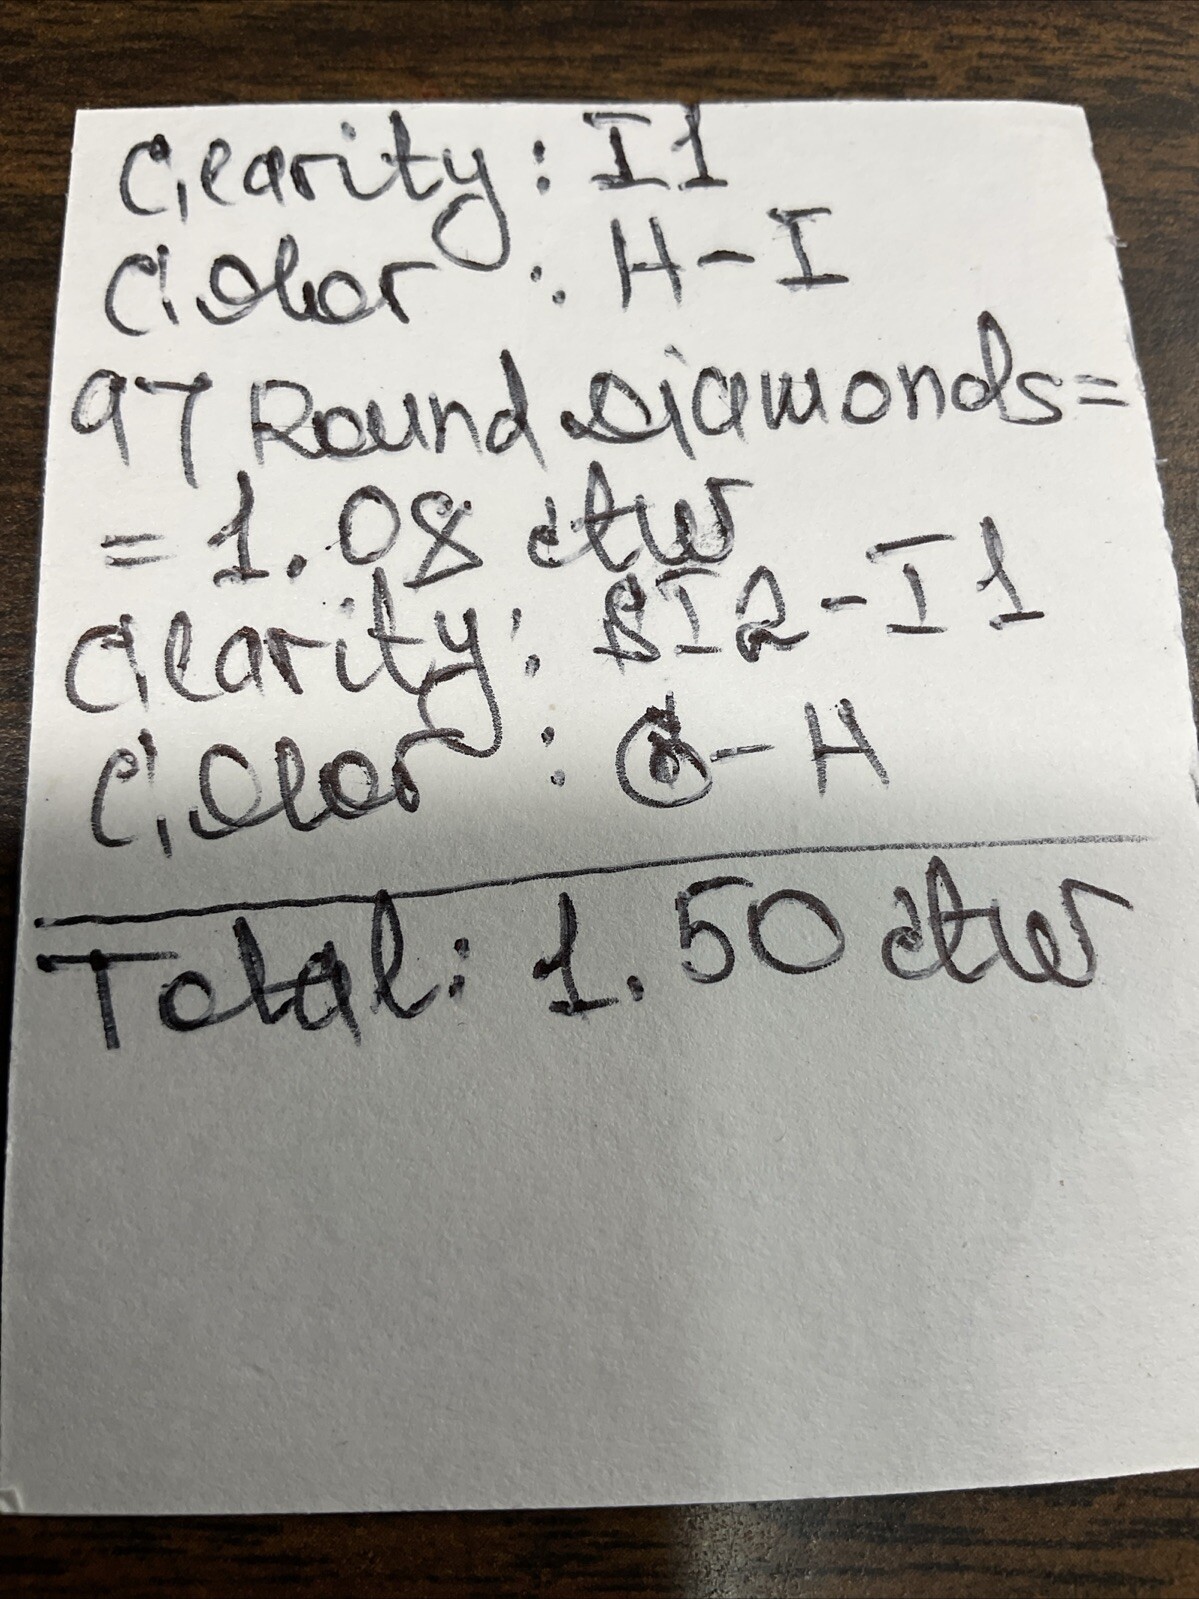 Clarity: I1
Color : H-I
97 Round Diamonds=
= 1.08 ctw
Clarity: SI2-I1
Color : G-H
Total: 1.50 ctw